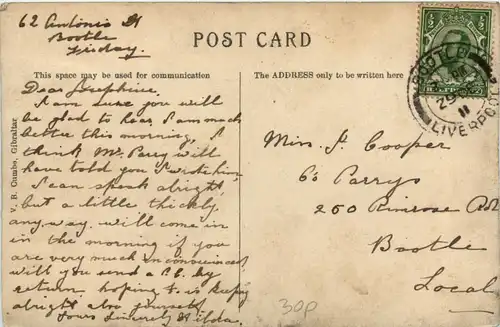 62 Antonis St
Bootle
Friday.
POST CARD
This space may be used for communication
The ADDRESS only to be written here
V. B. Cumbo, Gibraltar
BOOTLE
29
11
LIVERPOOL
Dear Josephine.
I am sure you will
be glad to hear I am much
better this morning, I
think Mr Parry will
have told you I wish him,
I can speak alright,
but a little thickly,
any way. will come in
in the morning if you
are very much inconvenienced
will you send a P.C. by
return, hoping J. is keeping
alright also yourself
Yours Sincerely Hilda.
Miss J. Cooper
c/o Parrys
250 Rimrose Rd
Bootle
Local
30p